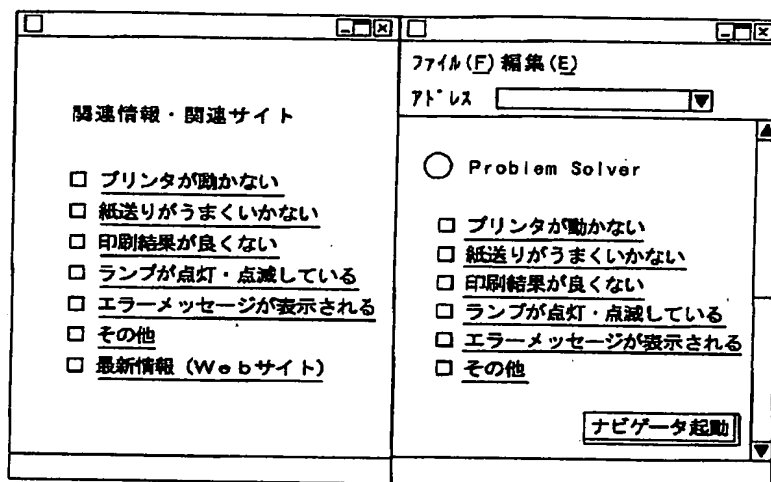 関連情報・関連サイト
プリンタが動かない
紙送りがうまくいかない
印刷結果が良くない
ランプが点灯・点滅している
エラーメッセージが表示される
その他
最新情報(Webサイト)
ファイル(F) 編集(E)
アドレス
Problem Solver
プリンタが動かない
紙送りがうまくいかない
印刷結果が良くない
ランプが点灯・点滅している
エラーメッセージが表示される
その他
ナビゲータ起動